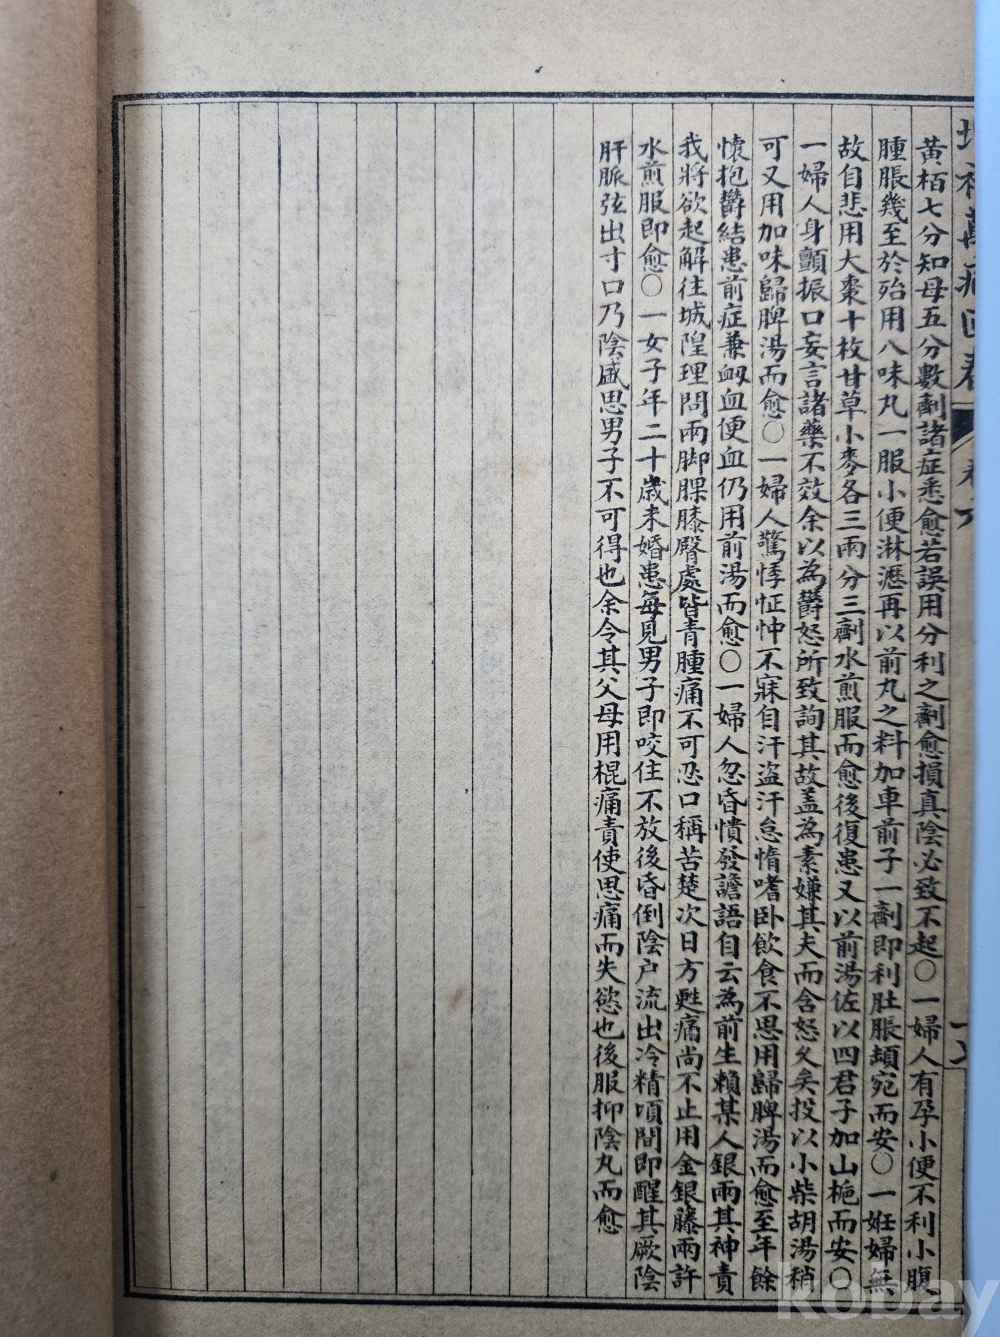 增補萬病回春 卷六
黃栢七分知母五分數劑諸症悉愈若誤用分利之劑愈損真陰必致不起○一婦人有孕小便不利小腹
腫脹幾至於殆用八味丸一服小便淋瀝再以前丸之料加車前子一劑即利肚脹頓宛而安○一妊婦無
故自悲用大棗十枚甘草小麥各三兩分三劑水煎服而愈後復患又以前湯佐以四君子加山梔而安○
一婦人身顫振口妄言諸藥不效余以為鬱怒所致詢其故盖為素嫌其夫而含怒久矣投以小柴胡湯稍
可又用加味歸脾湯而愈○一婦人驚悸怔忡不寐自汗盜汗怠惰嗜卧飲食不思用歸脾湯而愈至年餘
懷抱鬱結患前症兼衂血便血仍用前湯而愈○一婦人忽昏憒發譫語自云為前生賴某人銀兩其神責
我將欲起解往城隍理問兩脚腂膝臀處皆青腫痛不可忍口稱苦楚次日方甦痛尚不止用金銀藤兩許
水煎服即愈○一女子年二十歲未婚患每見男子即咬住不放後昏倒陰户流出冷精頃間即醒其厥陰
肝脈弦出寸口乃陰盛思男子不可得也余令其父母用棍痛責使思痛而失慾也後服抑陰丸而愈
kobay